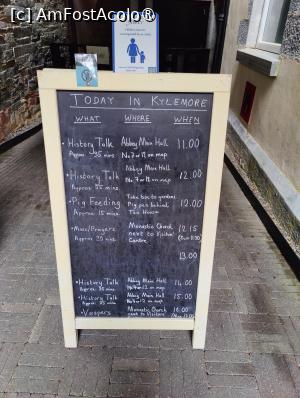 [c] AmFostAcolo®
TODAY IN KYLEMORE
WHAT WHERE WHEN
• History Talk Abbey Main Hall 11.00
Approx 35 mins No 7 on map
• History Talk Abbey Main Hall 12.00
Approx mins on map
• Pig Feeding Take bus to gardens 12.00
Approx 15 mins Pig pen behind
Tea House
• Mass/Prayers Monastic Church 12.15
Approx mins next to Visitor
Centre
13.00
• History Talk Abbey Main Hall 14.00
Approx mins on map
• History Talk Abbey Main Hall 15.00
Approx mins on map
• Vespers Monastic Church 16.00
next to Visitors